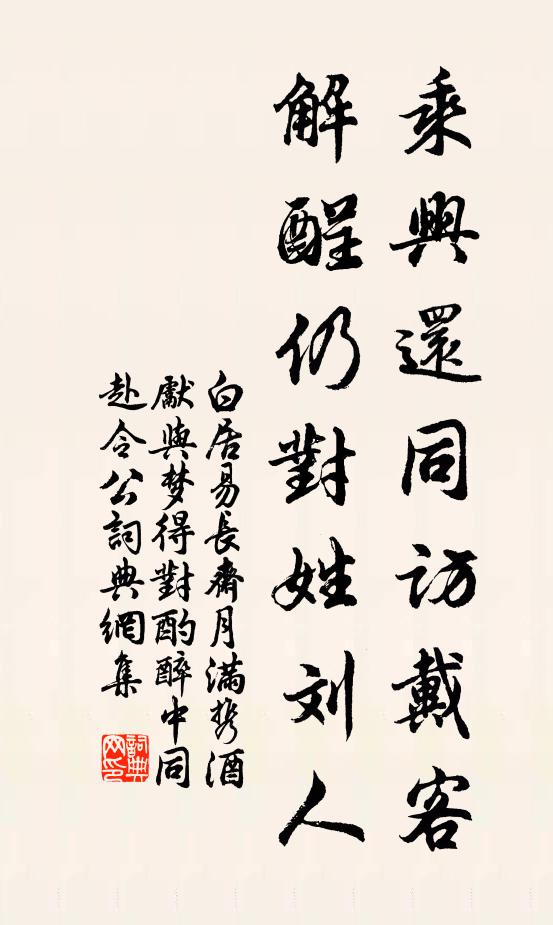 乘興還同访戴客
解酲仍對姓刘人
白居易長齋月满携酒
獻與梦得對酌醉中同
赴令公詞典網集
詞典
网印